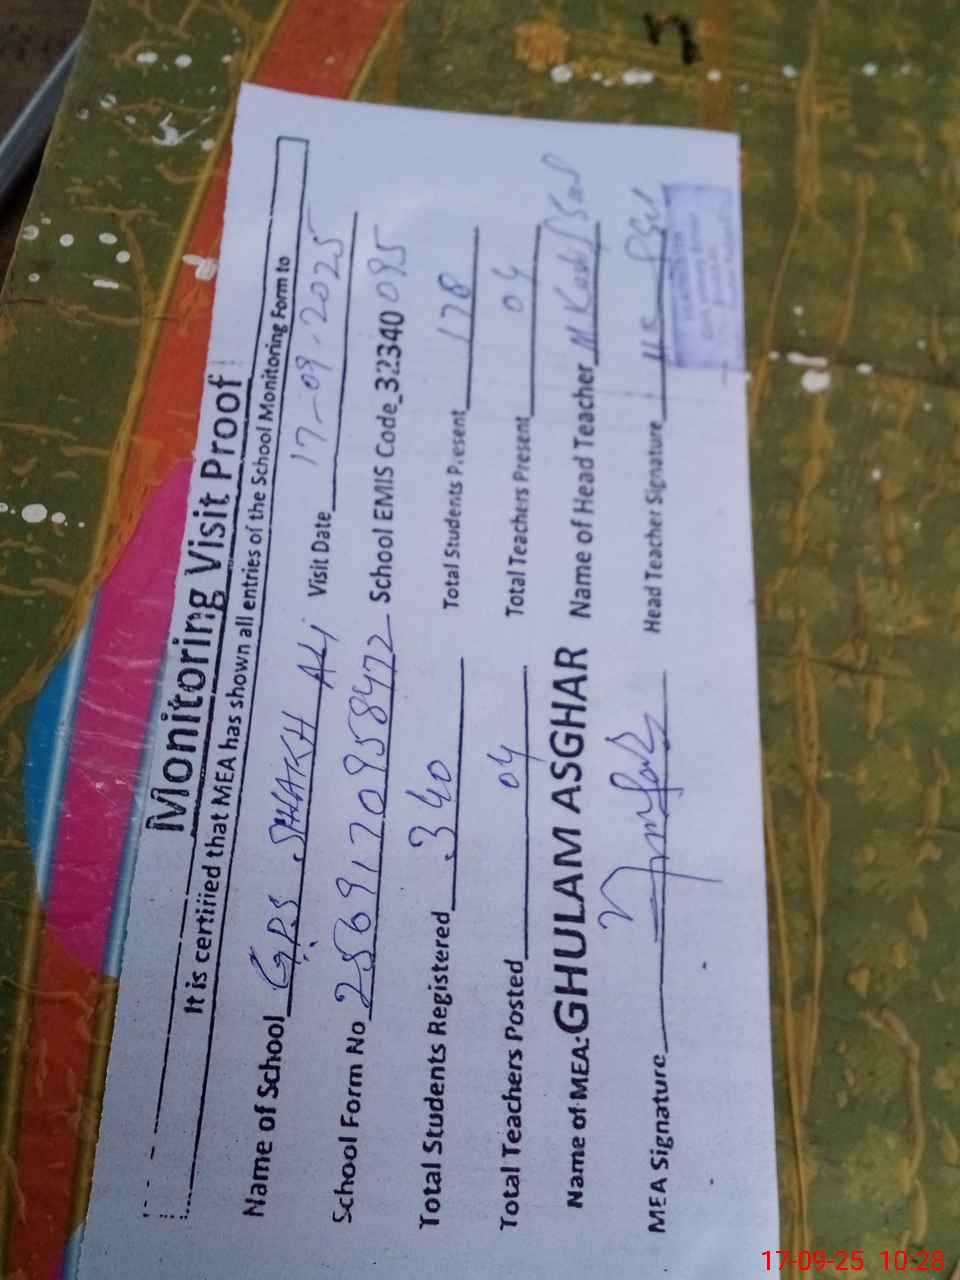 Monitoring Visit Proof
It is certified that MEA has shown all entries of the School Monitoring Form to
Name of School G.P.S SHAIKH ALi Visit Date 17-09-2025
School Form No 2569170958472 School EMIS Code 32340095
Total Students Registered 340 Total Students Present 178
Total Teachers Posted 04 Total Teachers Present 04
Name of MEA: GHULAM ASGHAR Name of Head Teacher M Kashif
MEA Signature Head Teacher Signature
17-09-25 10:28